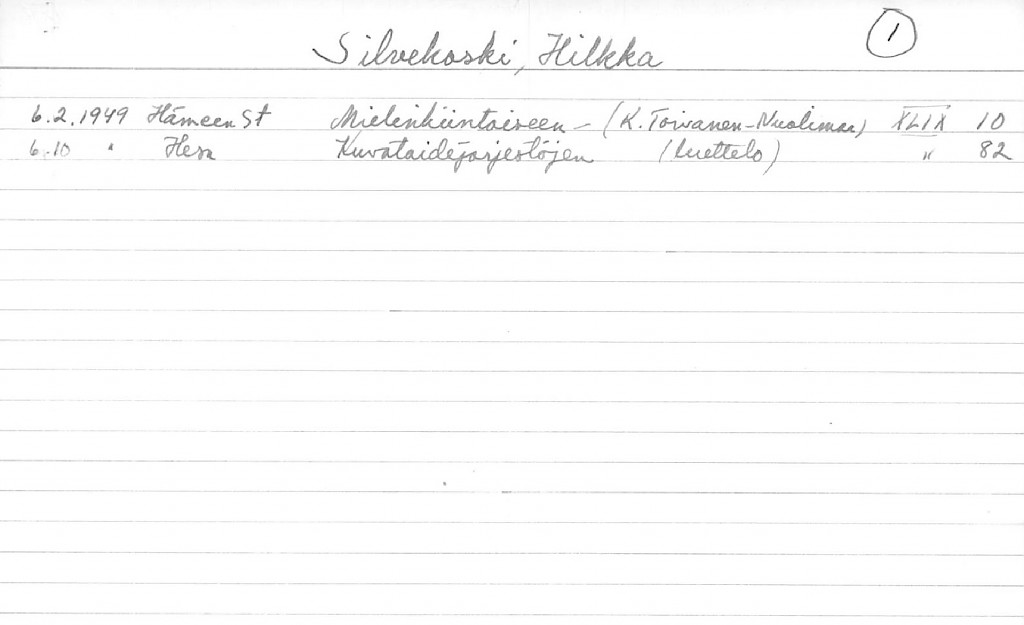 Silvekoski, Hilkka 1
6.2.1949 Hämeen St Mielenkiintoiseen - (K. Toivanen-Nuolimaa) XLIX 10
6.10 " Hesa Kuvataidejärjestöjen (luettelo) " 82